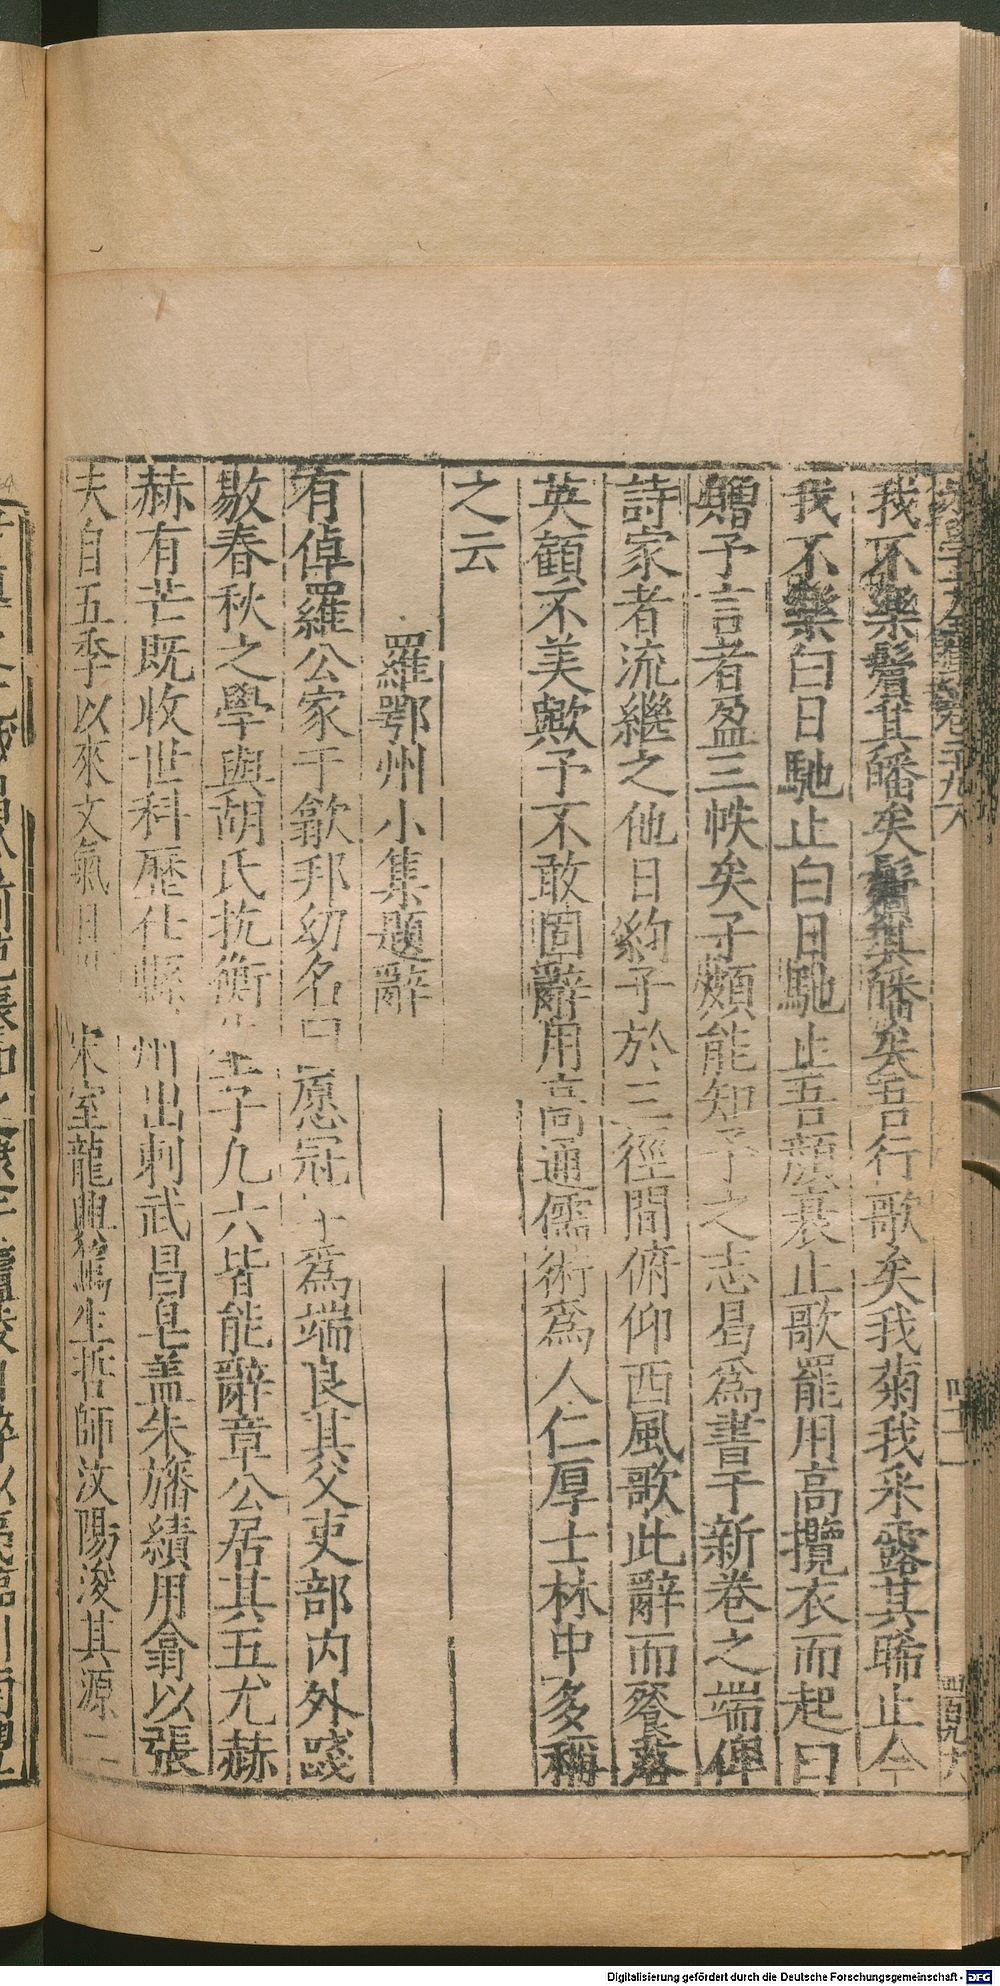 我不樂鬢其皤矣鬢其皤矣吾行歌矣我菊我采露其晞止今
我不樂白日馳止白日馳止吾顏衰止歌罷用高攬衣而起曰
贈予言者盈三帙矣子頗能知予之志曷爲書于新卷之端俾
詩家者流繼之他日約子於三徑間俯仰西風歌此辭而餐落
英顧不美歟予不敢固辭用高通儒術爲人仁厚士林中多稱
之云
羅鄂州小集題辭
有倬羅公家于歙邦幼名曰愿冠 爲端良其父吏部内外踐
敭春秋之學與胡氏抗衡 子九六皆能辭章公居其五尤赫
赫有芒既收世科歷仕縣 州出刺武昌皂盖朱旛績用翕以張
夫自五季以來文氣日 宋室龍興篤生哲師汶陽浚其源
四十一
四百九六
Digitalisierung gefördert durch die Deutsche Forschungsgemeinschaft - DFG